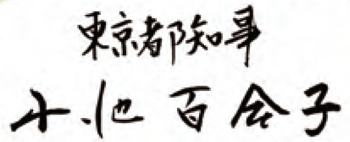 東京都知事
小池百合子